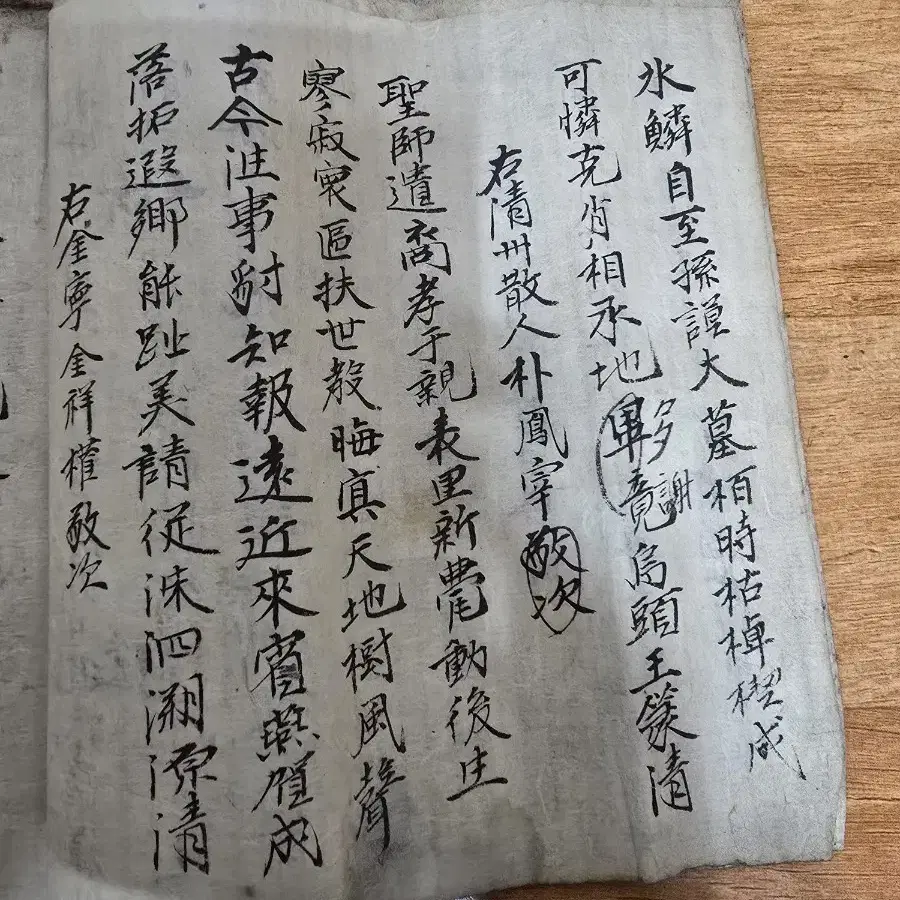 氷鱗自至孫謨大墓栢時枯棹楔成
可憐克肖相承地畢竟烏頭王篆清
夥謝
右清州散人朴鳳宰敬次
聖師遺裔孝于親表里新甍動後生
寥寂寰區扶世教晦冥天地樹風聲
古今往事知報遠近來賓燕賀成
落拓遐鄉能趾美請從洙泗溯源清
右金寧金祥權敬次